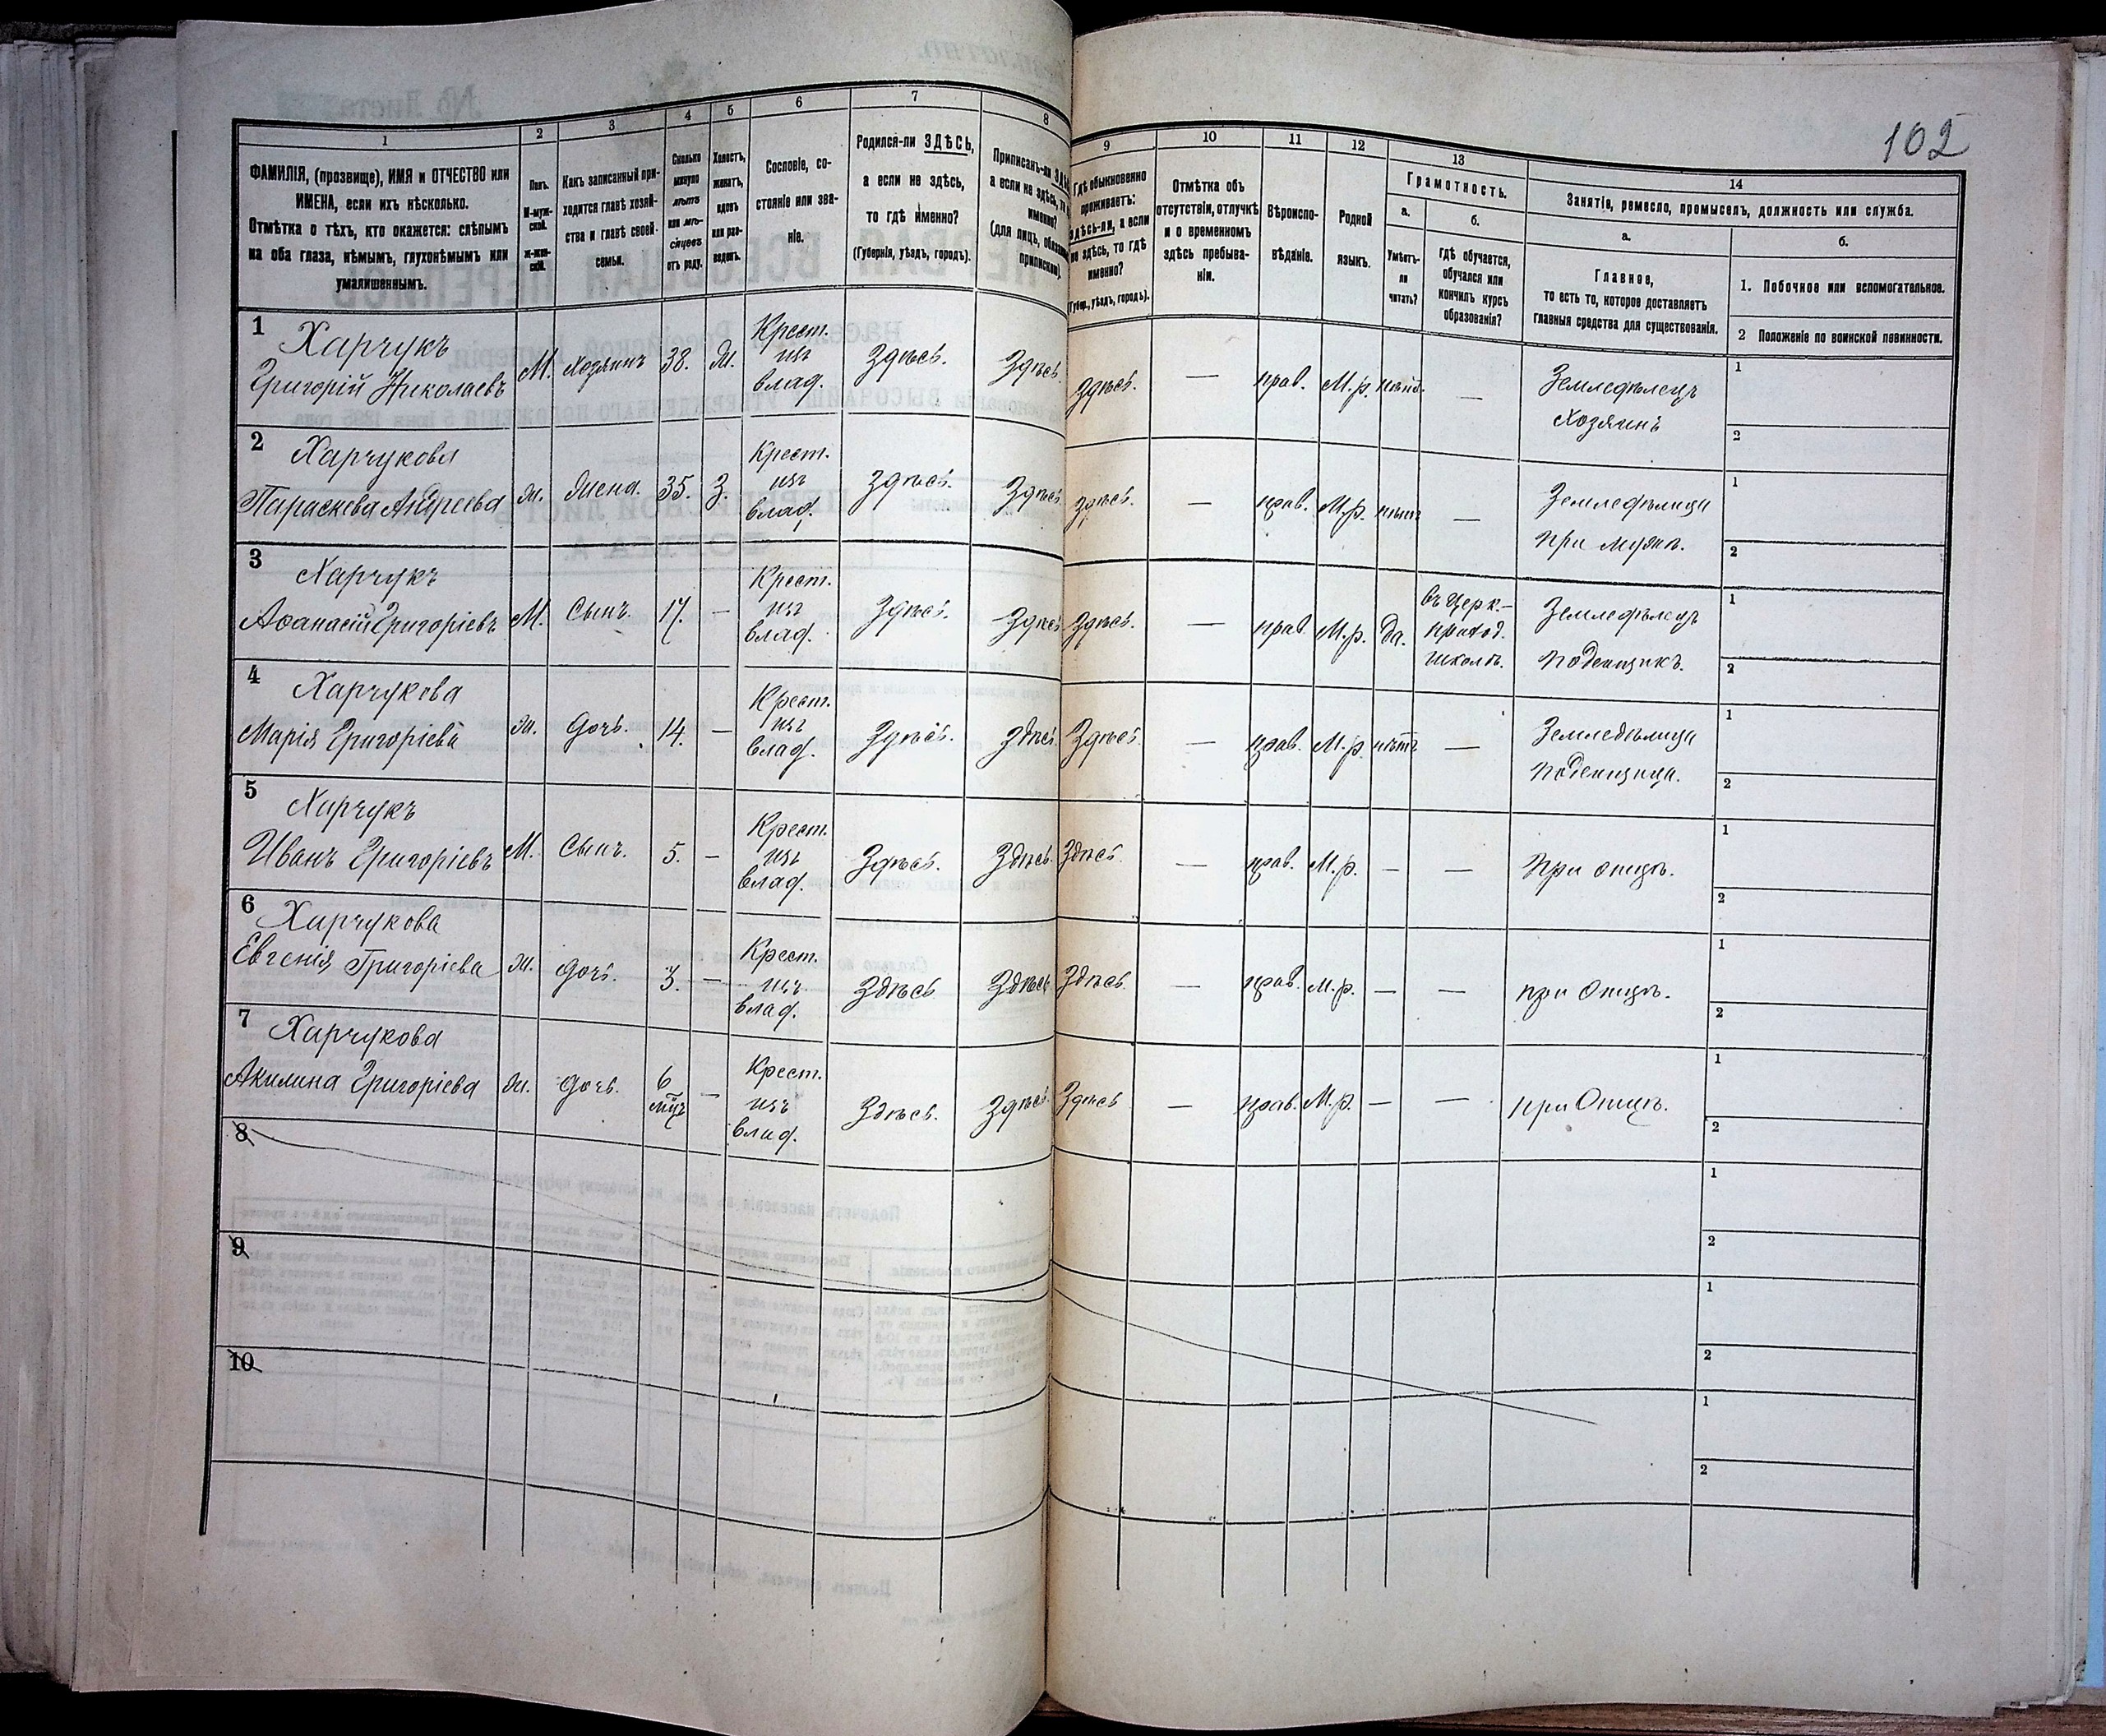 102
1
2
3
4
5
6
7
8
ФАМИЛІЯ, (прозвище), ИМЯ и ОТЧЕСТВО или
ИМЕНА, если ихъ нѣсколько.
Отмѣтка о тѣхъ, кто окажется: слѣпымъ
на оба глаза, нѣмымъ, глухонѣмымъ или
умалишеннымъ.
Полъ.
М-муж-
ской.
Ж-жен-
скій.
Какъ записанный при-
ходится главѣ хозяй-
ства и главѣ своей
семьи.
Сколько
минуло
лѣтъ
или мѣ-
сяцевъ
отъ роду.
Холостъ,
женатъ,
вдовъ
или раз-
веденъ.
Сословіе, со-
стояніе или зва-
ніе.
Родился-ли ЗДѢСЬ,
а если не здѣсь,
то гдѣ именно?
(Губернія, уѣздъ, городъ).
Приписанъ-ли
а если не здѣсь, то
именно?
(для лицъ,
припискѣ).
9
10
11
12
13
14
Гдѣ обыкновенно
проживаетъ:
здѣсь-ли, а если
не здѣсь, то гдѣ
именно?
(Губер., уѣздъ, городъ).
Отмѣтка объ
отсутствіи, отлучкѣ
и о временномъ
здѣсь пребыва-
ніи.
Вѣроиспо-
вѣданіе.
Родной
языкъ.
Грамотность.
а.
Умѣетъ-
ли
читать?
б.
Гдѣ обучается,
обучался или
кончилъ курсъ
образованія?
Занятіе, ремесло, промыселъ, должность или служба.
а.
Главное,
то есть то, которое доставляетъ
главныя средства для существованія.
б.
1. Побочное или вспомогательное.
2 Положеніе по воинской повинности.
1
Харчукъ
Григорій Николаевъ
М. Хозяинъ 38. Ж.
Крест.
изъ
влад.
Здѣсь. Здѣсь. Здѣсь. — прав. М.р. нѣтъ. —
Земледѣлецъ
Хозяинъ
1
2
2
Харчукова
Параскева Андреева
Ж. Жена. 35. З.
Крест.
изъ
влад.
Здѣсь. Здѣсь Здѣсь. — прав. М.р. нѣтъ —
Земледѣлица
при мужѣ.
1
2
3
Харчукъ
Аѳанасій Григоріевъ
М. Сынъ. 17. —
Крест.
изъ
влад.
Здѣсь. Здѣсь Здѣсь. — прав. М.р. Да.
въ церк.-
приход.
школѣ.
Земледѣлецъ
поденщикъ.
1
2
4
Харчукова
Марія Григоріева
Ж. Дочь. 14. —
Крест.
изъ
влад.
Здѣсь. Здѣсь. Здѣсь. — прав. М.р. нѣтъ —
Земледѣлица
поденщица.
1
2
5
Харчукъ
Иванъ Григоріевъ
М. Сынъ. 5. —
Крест.
изъ
влад.
Здѣсь. Здѣсь. Здѣсь. — прав. М.р. — —
При отцѣ.
1
2
6
Харчукова
Евгенія Григоріева
Ж. Дочь. 3. —
Крест.
изъ
влад.
Здѣсь Здѣсь. Здѣсь. — прав. М.р. — —
при Отцѣ.
1
2
7
Харчукова
Акилина Григоріева
Ж. Дочь. 6
мцъ —
Крест.
изъ
влад.
Здѣсь. Здѣсь. Здѣсь — прав. М.р. — —
при Отцѣ.
1
2
8
1
2
9
1
2
10
1
2